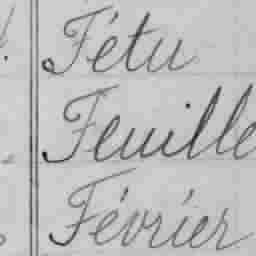 Fétu
Feuille
Février